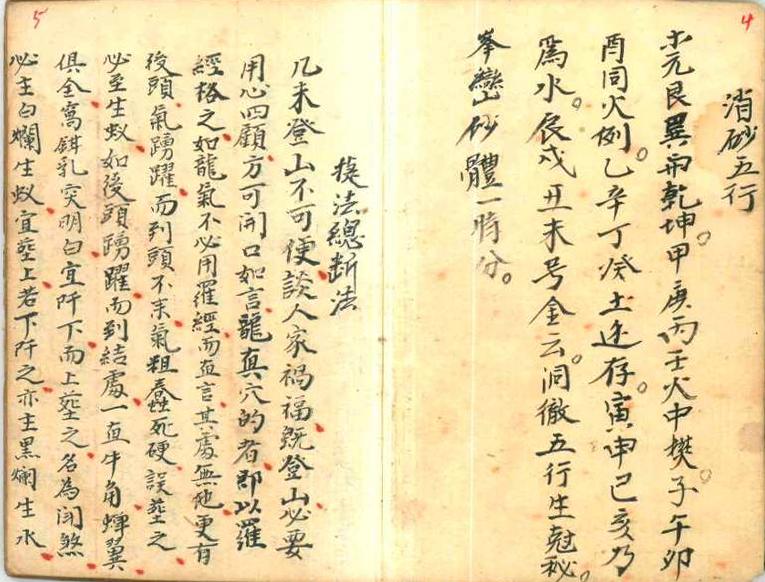 4
消砂五行
木元艮巽而乾坤。甲庚丙壬火中樊。子午卯
酉同火例。乙辛丁癸土迬存。寅申巳亥乃
為水。辰戌丑未号金云。洞徹五行生尅秘。
峯巒砂體一時分。
5
撓法總断法
凡未登山不可便談人家禍福既登山必要
用心四顧方可開口如言龍真穴的者即以羅
經格之如龍氣不必用羅經而直言其處無他更有
後頭氣踴躍而到頭不來氣粗蠢死硬誤塟之
必至生蚁如後頭踴躍而到結處一直牛角蟬翼
俱全窩鉗乳突明白宜阡下而上塟之名為閉煞
必主白爛生蚁宜塟上若下阡之亦主黑爛生水